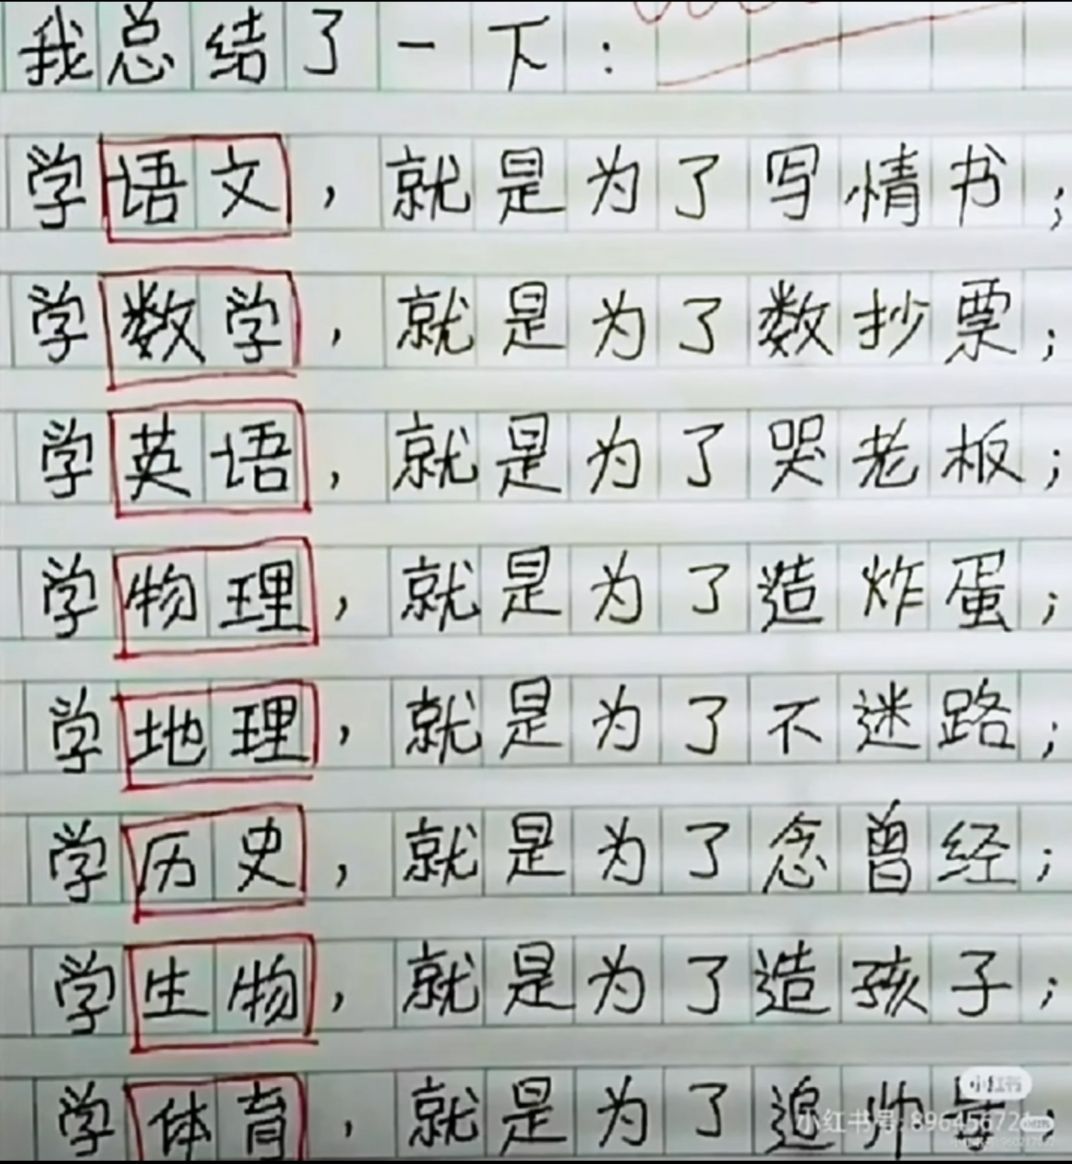 我总结了一下：
学语文，就是为了写情书；
学数学，就是为了数抄票；
学英语，就是为了哭老板；
学物理，就是为了造炸蛋；
学地理，就是为了不迷路；
学历史，就是为了念曾经；
学生物，就是为了造孩子；
学体育，就是为了追帅
小红书
小红书号: